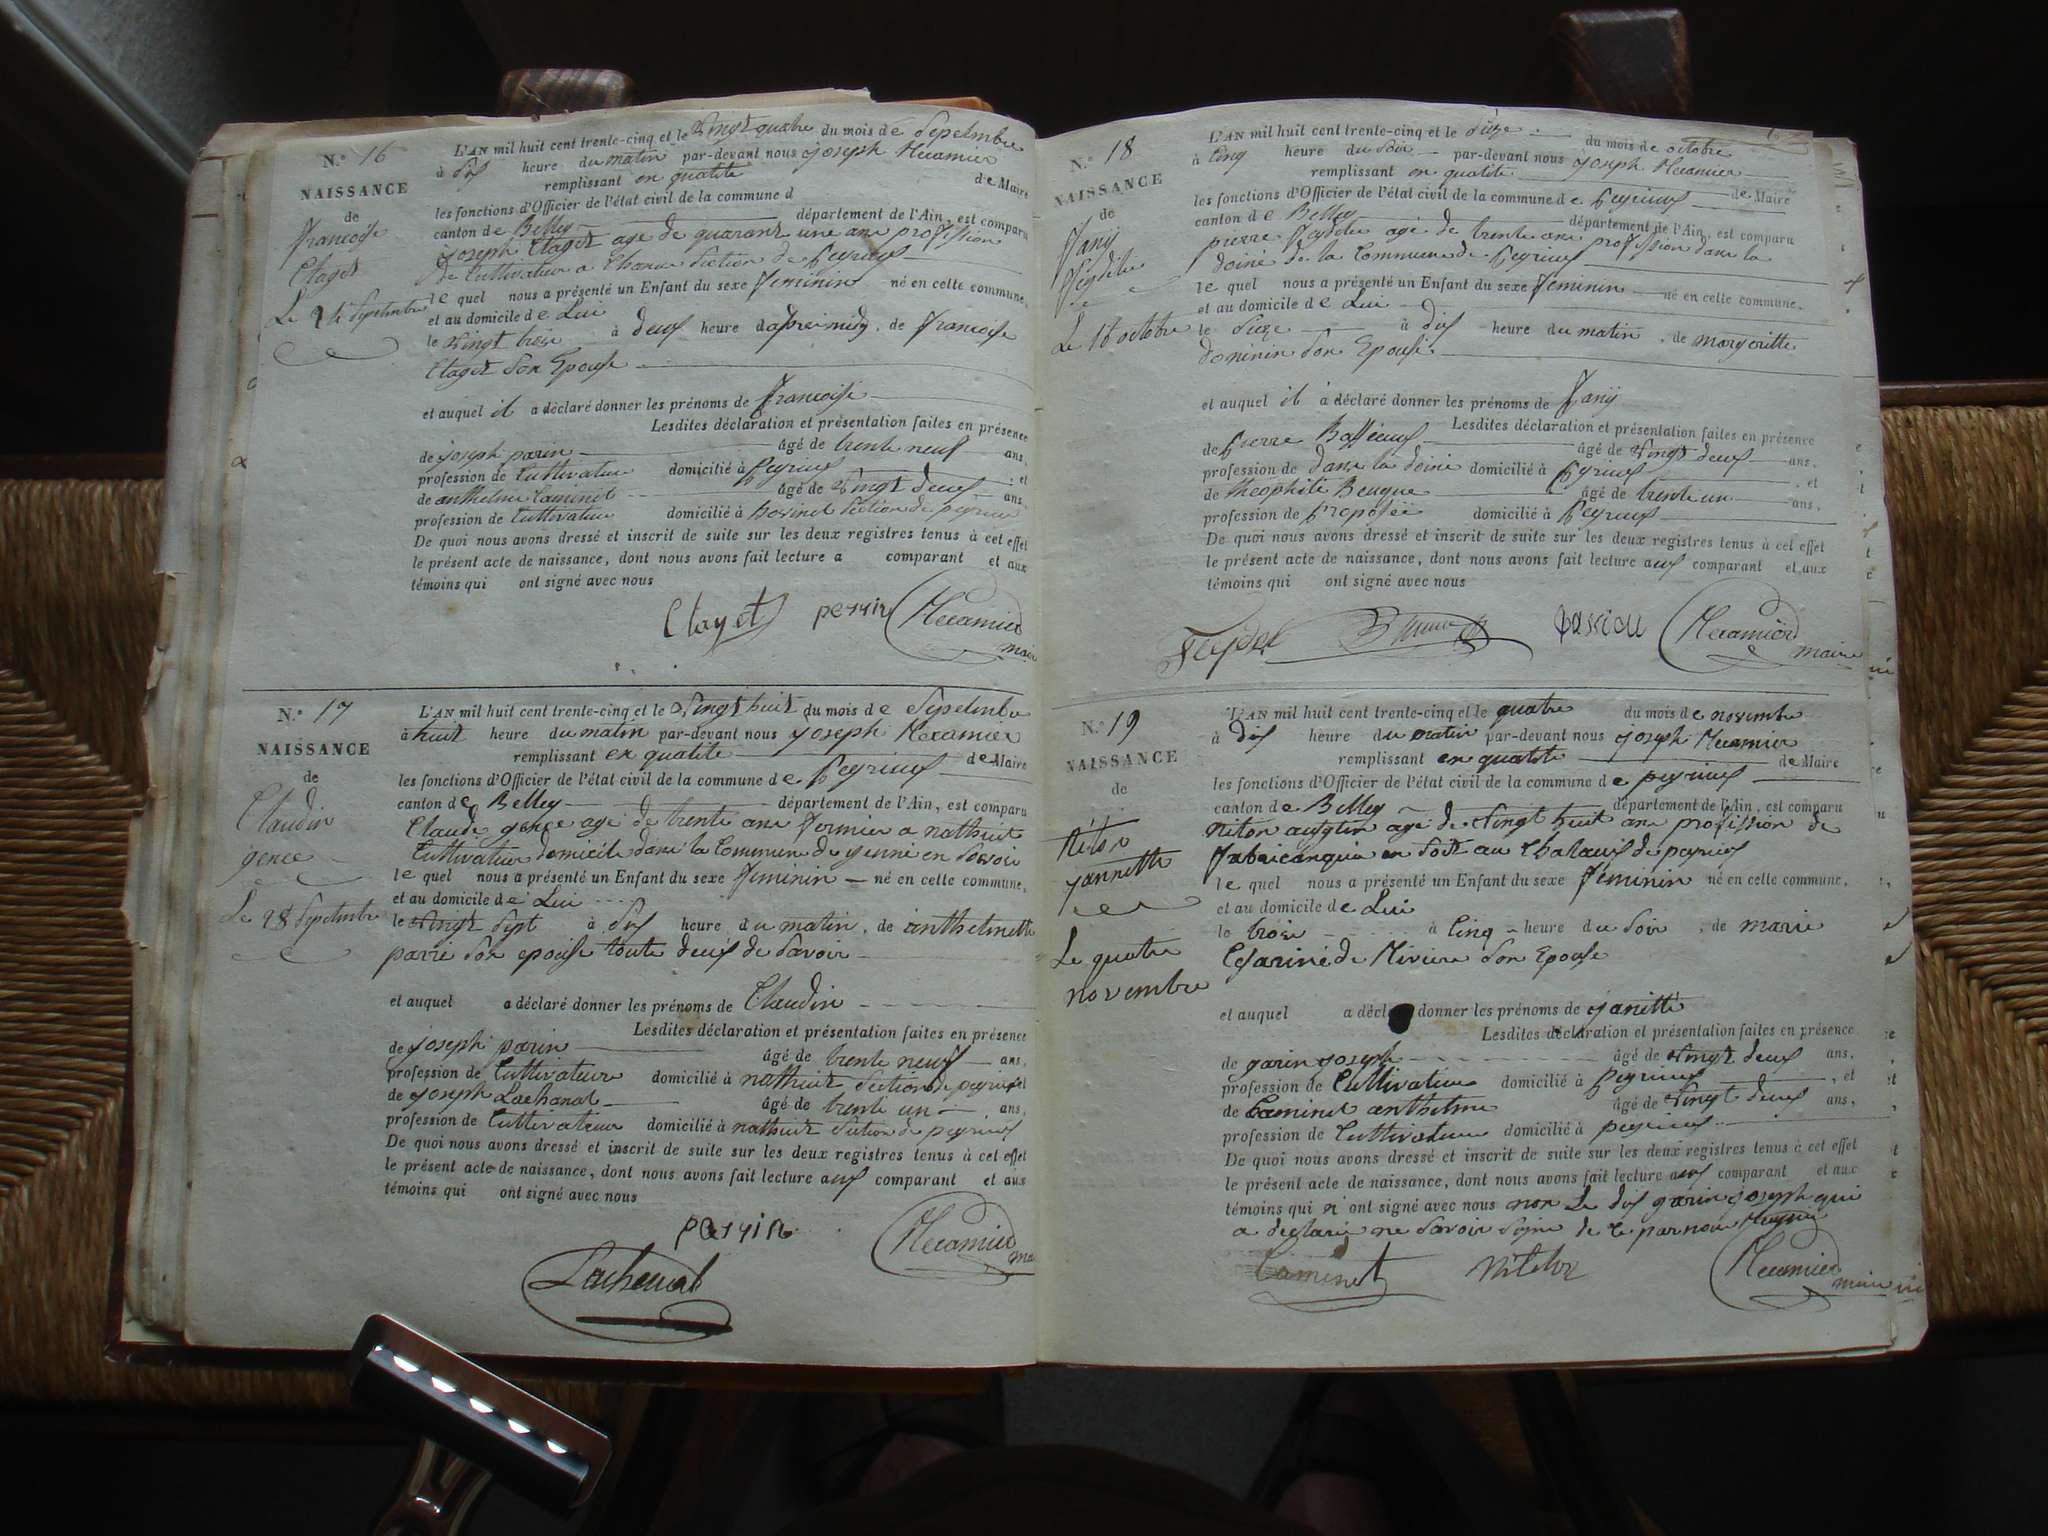 N.° 16
NAISSANCE
de
Francoise
Clayet
Le 24 Septembre
L'AN mil huit cent trente-cinq et le Vingt quatre du mois de Septembre
à dix heure du matin par-devant nous joseph Recamier
remplissant en qualité de Maire
les fonctions d'Officier de l'état civil de la commune d
canton de Belley département de l'Ain, est comparu
joseph Clayet age de quarant une ans profession
de Cultivateur a Section de peyrieux
le quel nous a présenté un Enfant du sexe feminin né en cette commune,
et au domicile de Lui
le Vingt trois à deux heure dapreimidy, de francoise
Clayet Son Epouse
et auquel il a déclaré donner les prénoms de francoise
Lesdites déclaration et présentation faites en présence
de joseph parin âgé de trente neuf ans,
profession de Cultivateur domicilié à peyrieux et
de anthelme Caminet âgé de Vingt deux ans,
profession de Cultivateur domicilié à Section de peyrieux
De quoi nous avons dressé et inscrit de suite sur les deux registres tenus à cet effet
le présent acte de naissance, dont nous avons fait lecture a comparant et aux
témoins qui ont signé avec nous
Clayet perrin Recamier
maire
N.° 17
NAISSANCE
de
Claudin
gence
Le 28 Septembre
L'AN mil huit cent trente-cinq et le Vingt huit du mois de Septembre
à huit heure du matin par-devant nous joseph Recamier
remplissant en qualité de Maire
les fonctions d'Officier de l'état civil de la commune de peyrieux
canton de Belley département de l'Ain, est comparu
Claude gence agé de trente ans fermier a nathieux
Cultivateur domicile dans la Commune de yenne en Savoir
le quel nous a présenté un Enfant du sexe feminin né en cette commune,
et au domicile de Lui
le Vingt Sept à dix heure du matin, de anthelmette
parré Son epouse toute deux de Savoir
et auquel a déclaré donner les prénoms de Claudin
Lesdites déclaration et présentation faites en présence
de joseph parin âgé de trente neuf ans,
profession de Cultivateur domicilié à nathieux Section de peyrieux et
de joseph Lachanal âgé de trente un ans,
profession de Cultivateur domicilié à nathieux Section de peyrieux
De quoi nous avons dressé et inscrit de suite sur les deux registres tenus à cet effet
le présent acte de naissance, dont nous avons fait lecture aux comparant et aux
témoins qui ont signé avec nous
perrin Recamier
Lachenal
N.° 18
NAISSANCE
de
fanÿ
feydelle
Le 16 octobre
L'AN mil huit cent trente-cinq et le Sieze du mois de octobre
à Cinq heure du Soir par-devant nous joseph Recamier
remplissant en qualité de Maire
les fonctions d'Officier de l'état civil de la commune de peyrieux
canton de Belley département de l'Ain, est comparu
pierre feydele agé de trente ans profession dans la
doine de la Commune de peyrieux
le quel nous a présenté un Enfant du sexe feminin né en cette commune,
et au domicile de Lui
le Sieze à dix heure du matin, de margeritte
Son Epouse
et auquel il à déclaré donner les prénoms de fanÿ
Lesdites déclaration et présentation faites en présence
de pierre âgé de Vingt deux ans,
profession de dans la doine domicilié à peyrieux, et
de theophile âgé de trente un ans,
profession de préposée domicilié à peyrieux
De quoi nous avons dressé et inscrit de suite sur les deux registres tenus à cet effet
le présent acte de naissance, dont nous avons fait lecture aux comparant et aux
témoins qui ont signé avec nous
Feydel Recamier
maire
N.° 19
NAISSANCE
de
Niton
jannette
Le quatre
novembre
L'AN mil huit cent trente-cinq et le quatre du mois de novembre
à dix heure du matin par-devant nous joseph Recamier
remplissant en qualité de Maire
les fonctions d'Officier de l'état civil de la commune de peyrieux
canton de Belley département de l'Ain, est comparu
Niton agé de Vingt huit ans profession de
en Soit au de peyrieux
le quel nous a présenté un Enfant du sexe féminin né en cette commune,
et au domicile de Lui
le trois à Cinq heure du Soir, de marie
de Riviere Son Epouse
et auquel a déclaré donner les prénoms de janitte
Lesdites déclaration et présentation faites en présence
de garin joseph âgé de Vingt deux ans,
profession de Cultivateur domicilié à peyrieux, et
de Caminet anthelme âgé de Vingt deux ans,
profession de Cultivateur domicilié à peyrieux
De quoi nous avons dressé et inscrit de suite sur les deux registres tenus à cet effet
le présent acte de naissance, dont nous avons fait lecture aux comparant et aux
témoins qui n ont signé avec nous non Le dit garin joseph qui
a declaré ne Savoir Signe de Ce par nou
Caminet Niton Recamier
maire